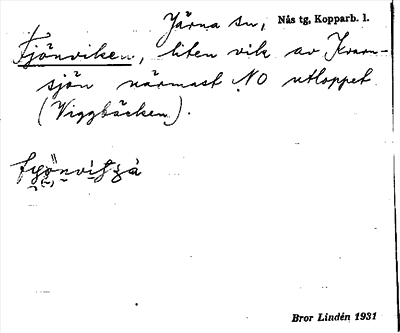 Järna sn, Nås tg, Kopparb. l.
Tjönviken, liten vik av Kvarn-
sjön närmast NO utloppet
(Viggbäcken).
Bror Lindén 1931